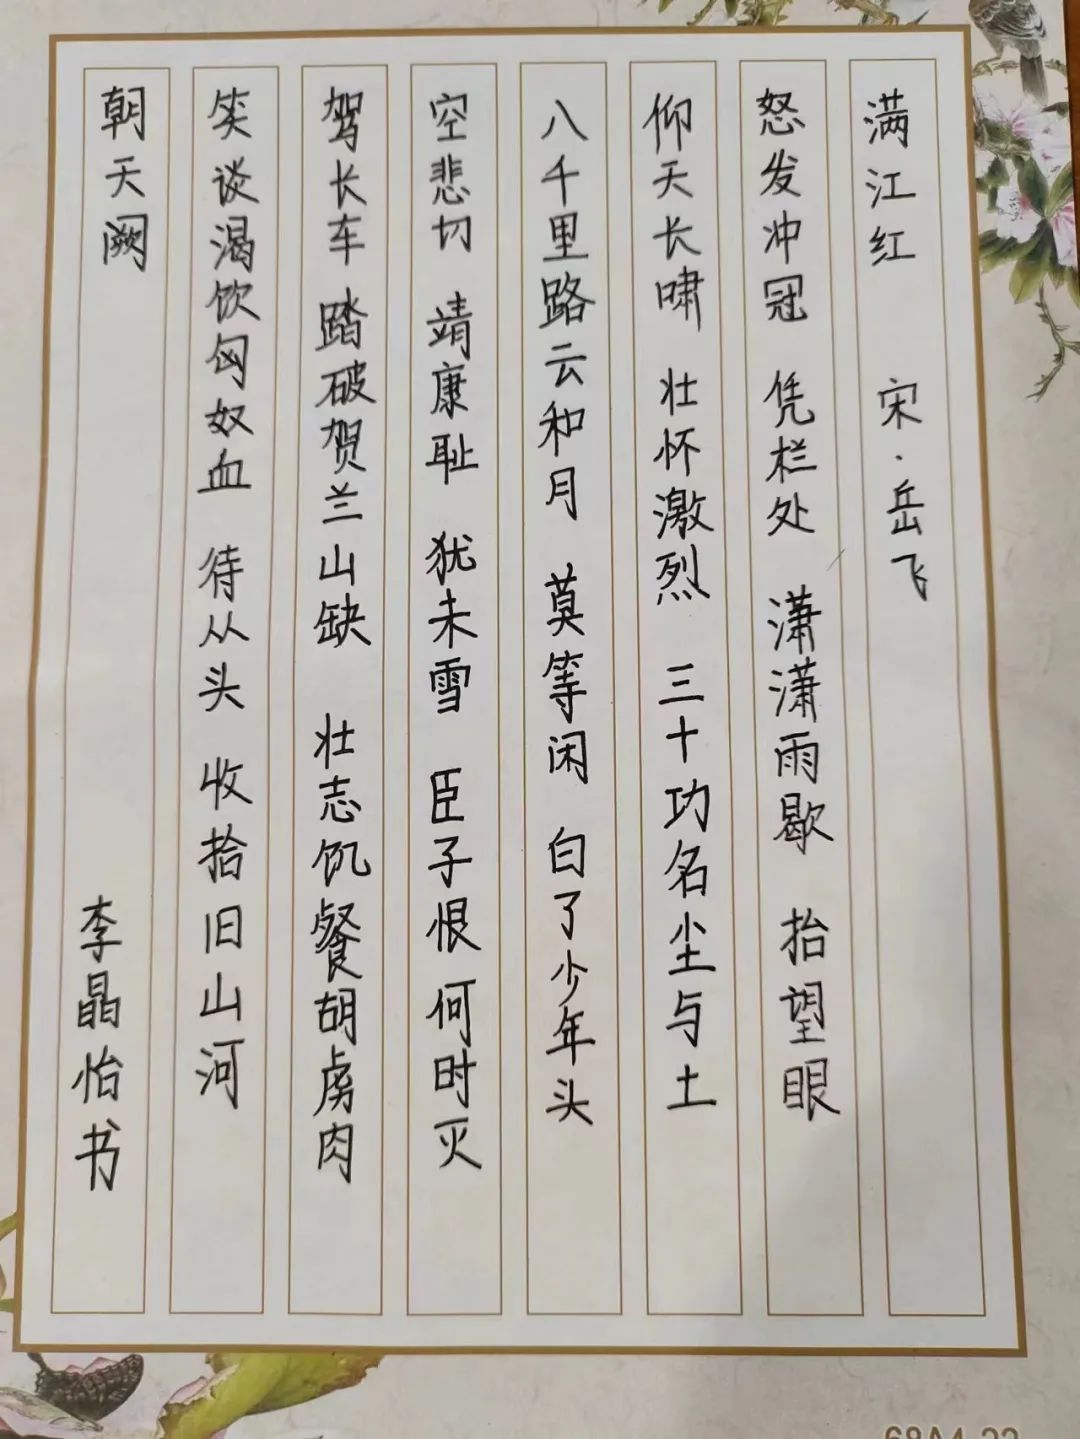 满江红 宋·岳飞
怒发冲冠 凭栏处 潇潇雨歇 抬望眼
仰天长啸 壮怀激烈 三十功名尘与土
八千里路云和月 莫等闲 白了少年头
空悲切 靖康耻 犹未雪 臣子恨 何时灭
驾长车 踏破贺兰山缺 壮志饥餐胡虏肉
笑谈渴饮匈奴血 待从头 收拾旧山河
朝天阙 李晶怡书